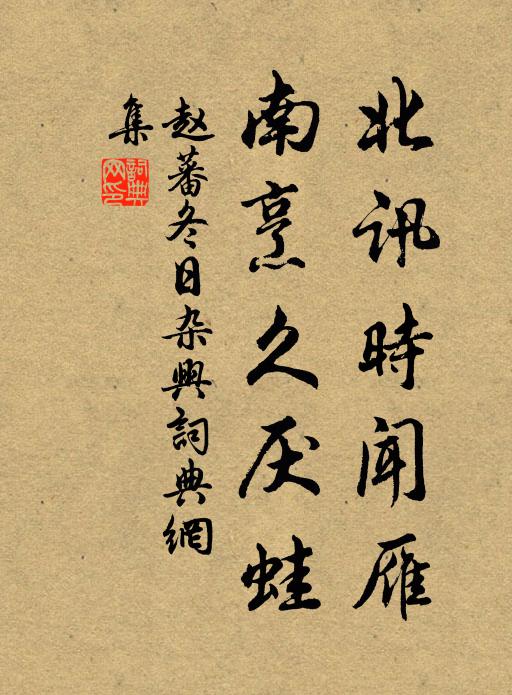 北讯時闻雁
南烹久厌蛙
赵蕃冬日杂興詞典網
集
詞典网印